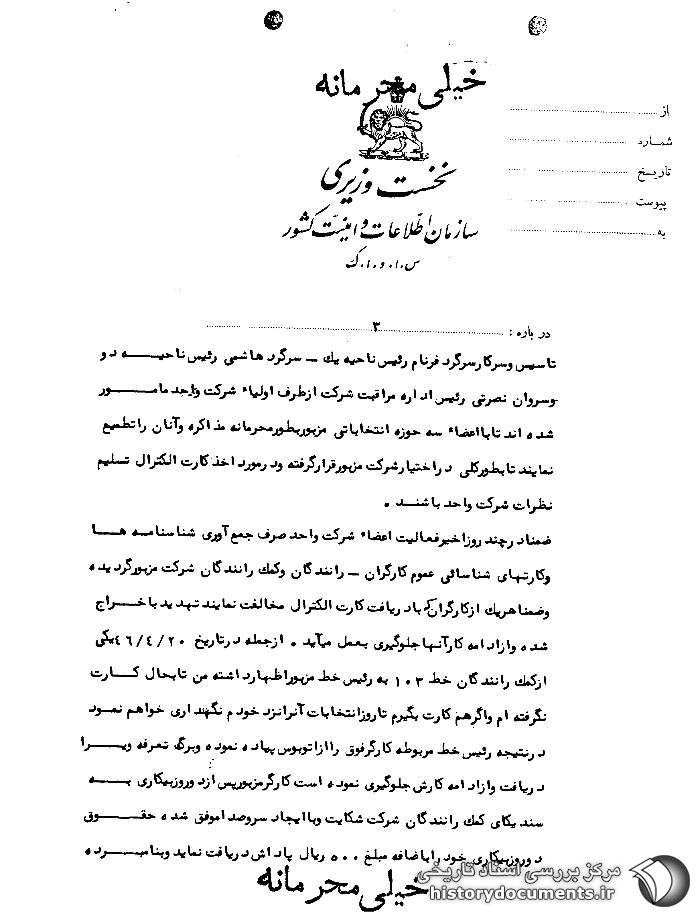 خیلی محرمانه
از
شماره
تاریخ
پیوست
به
نخست وزیری
سازمان اطلاعات و امنیت کشور
س.ا.و.ا.ک
در باره : ۳
تاسیس وسرکارسرگرد فرنام رئیس ناحیه یك – سرگرد هاشمی رئیس ناحیه دو
وسروان نصرتی رئیس اداره مراقبت شرکت ازطرف اولیاء شرکت واحد مامور
شده اند تابااعضاء سه حوزه انتخاباتی مزبوربطورمحرمانه مذاکره وآنان راتطمیع
نمایند تابطورکلی دراختیارشرکت مزبورقرارگرفته ودرمورد اخذ کارت الکترال تسلیم
نظرات شرکت واحد باشند .
ضمنادرچند روزاخیرفعالیت اعضاء شرکت واحد صرف جمع آوری شناسنامه ها
وکارتهای شناسائی عموم کارگران – رانندگان وکمك رانندگان شرکت مزبورگردیده
وضمناهریك ازکارگران که بادریافت کارت الکترال مخالفت نمایند تهدید باخراج
شده وازادامه کارآنها جلوگیری بعمل میآید . ازجمله درتاریخ ۴۶/۴/۲۰ یکی
ازکمك رانندگان خط ۱۰۳ به رئیس خط مزبوراظهارداشته من تابحال کارت
نگرفته ام واگرهم کارت بگیرم تاروزانتخابات آنرانزد خودم نگهداری خواهم نمود
درنتیجه رئیس خط مربوطه کارگرفوق راازاتوبوس پیاده نموده وبرگ تعرفه ویرا
دریافت وازادامه کارش جلوگیری نموده است کارگرمزبورپس ازدوروزبیکاری به
سندیکای کمك رانندگان شرکت شکایت وباایجاد سروصداموفق شده حقوق
دوروزبیکاری خود راباضافه مبلغ ۵۰۰ ریال پاداش دریافت نماید وبنامبرده
خیلی محرمانه
مرکز بررسی اسناد تاریخی
historydocuments.ir